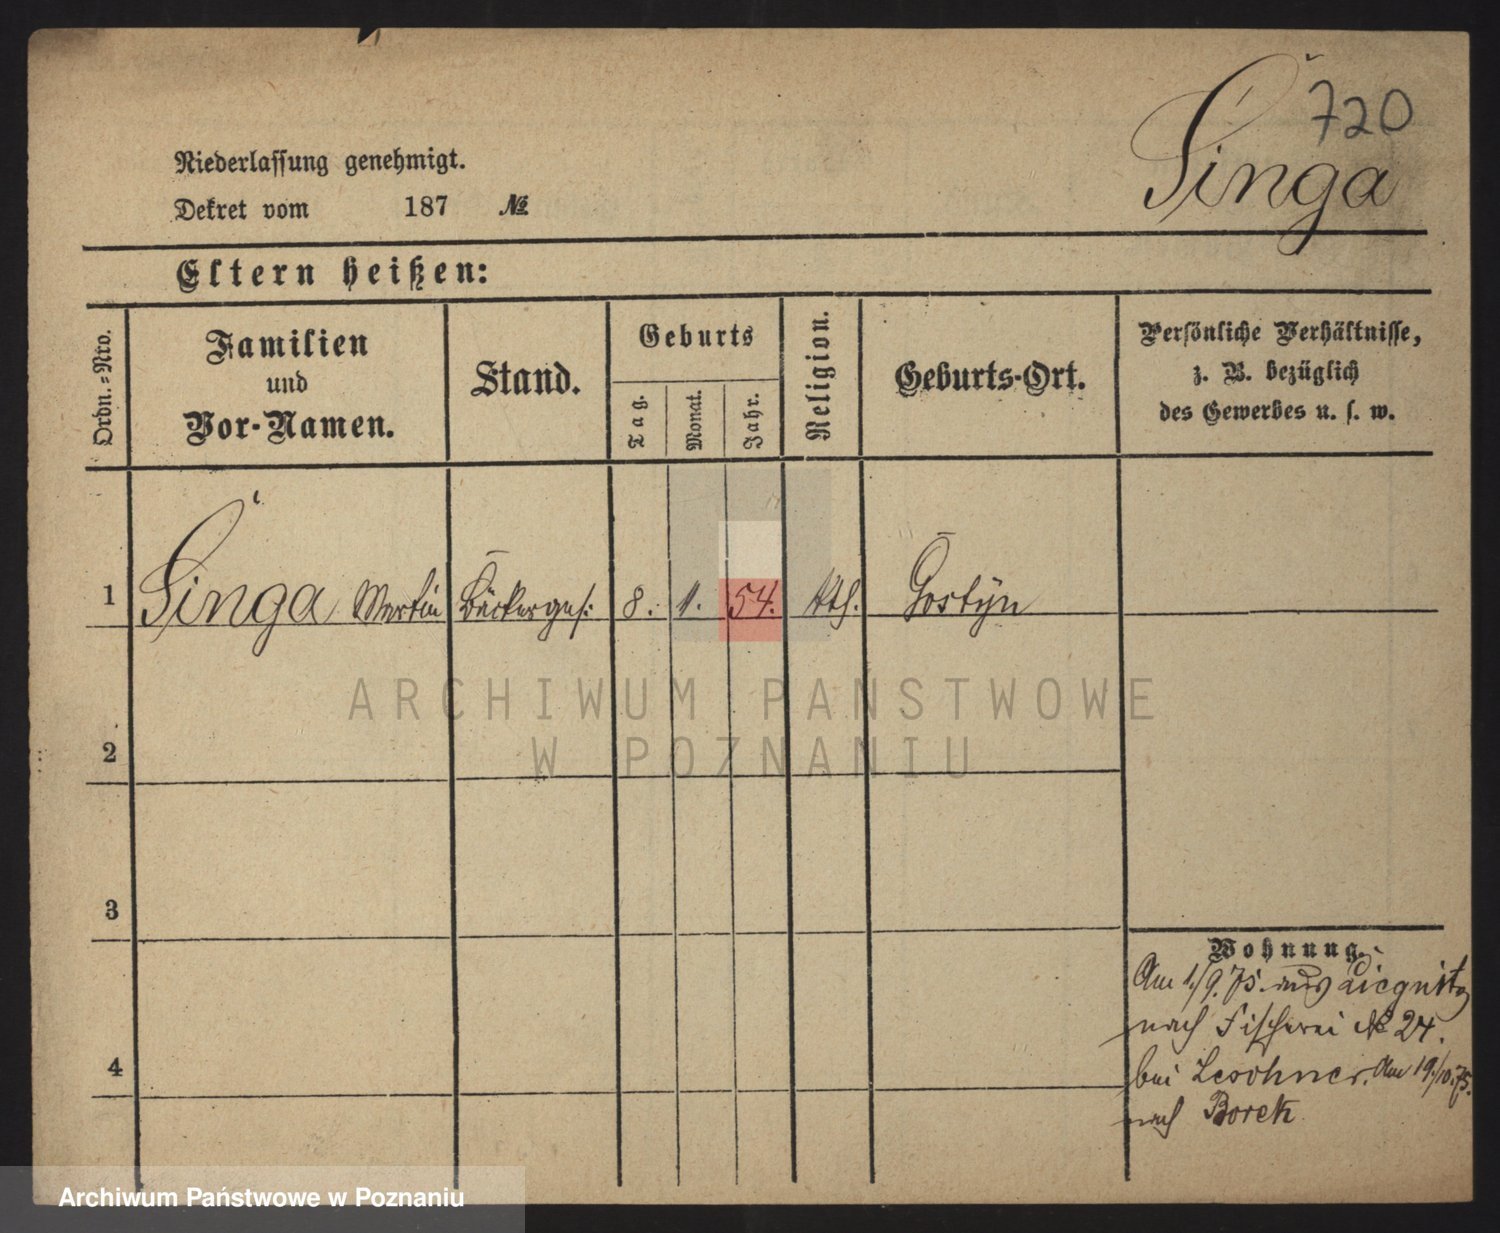 720
Singa
Niederlassung genehmigt.
Dekret vom 187 №
Eltern heißen:
Ordn.=Nro.
Familien
und
Vor-Namen.
Stand.
Geburts
Tag.
Monat.
Jahr.
Religion.
Geburts-Ort.
Persönliche Verhältnisse,
z. B. bezüglich
des Gewerbes u. s. w.
1 Singa Martin Bäckerges. 8. 1. 54. kth. Gostÿn
ARCHIWUM PAŃSTWOWE
W POZNANIU
2
3
4
Wohnung.
Am 1./9. 75. aus Liegnitz
nach Fischerei № 24.
bei Leschner. Am 19./10. 75.
nach Borek
Archiwum Państwowe w Poznaniu